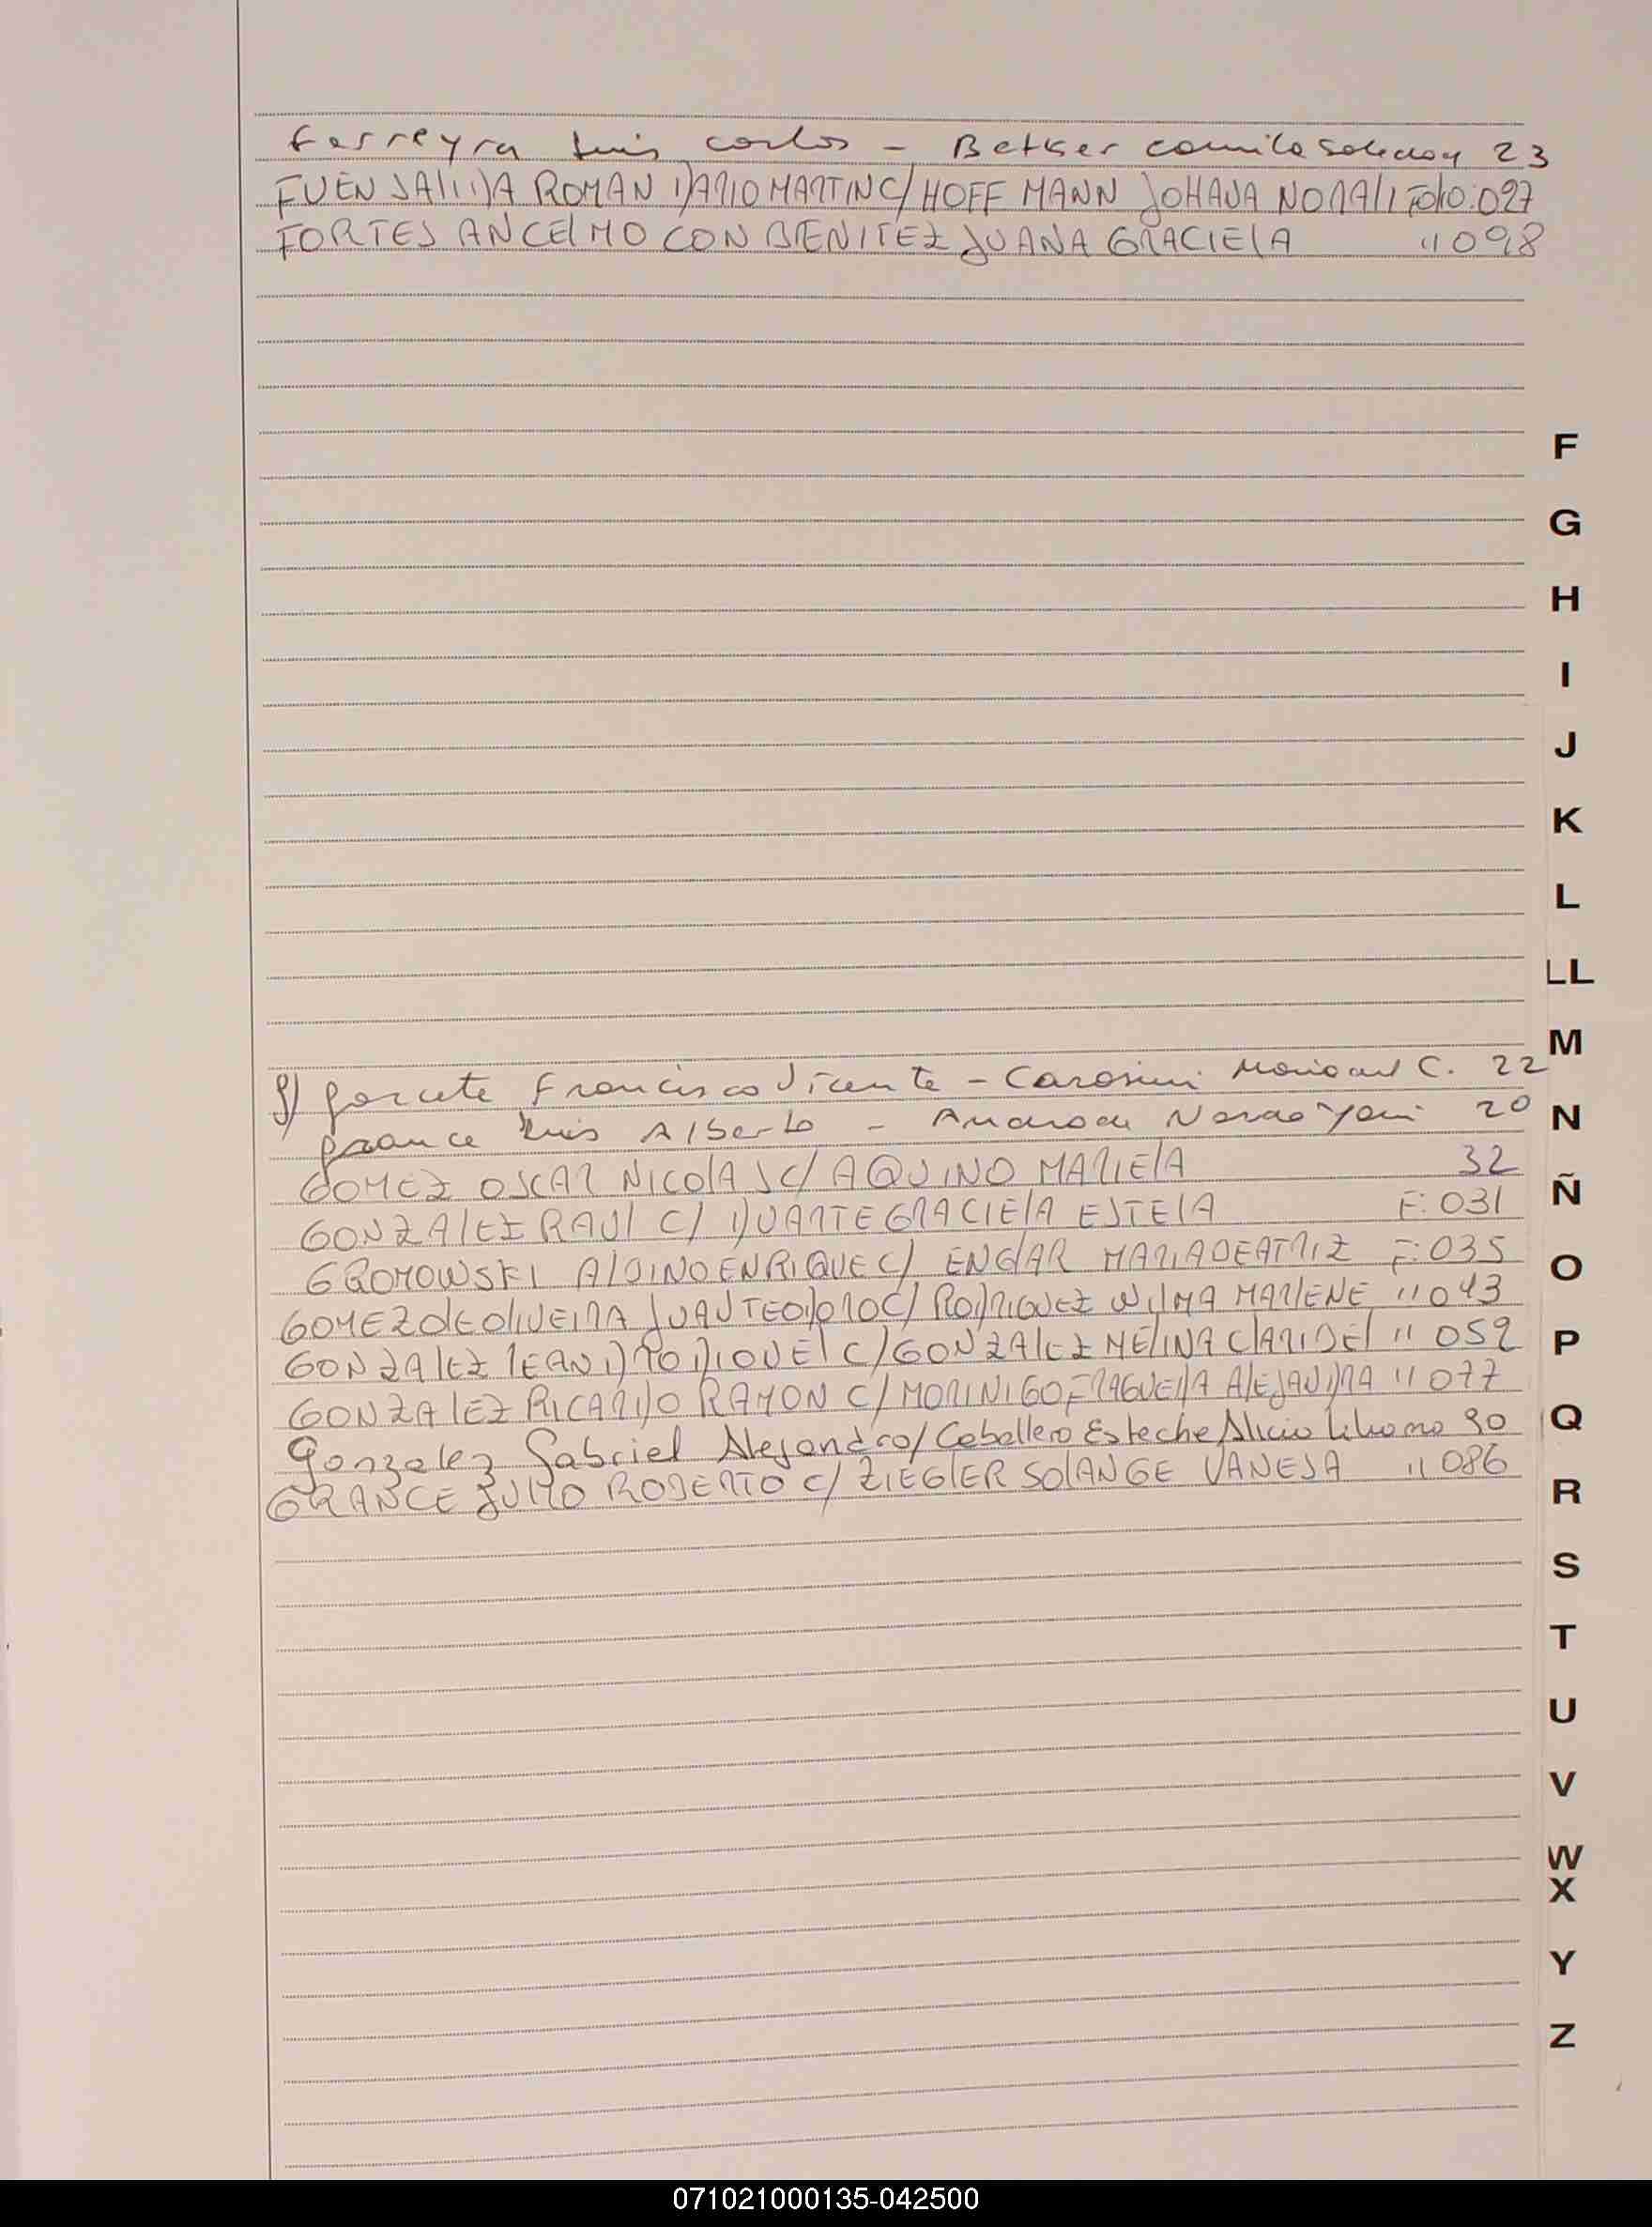 Ferreyra Luis Carlos - Betker Camila Soledad 23
FUENSALIDA ROMAN DARIO MARTIN C/ HOFFMANN JOHANA NORALI Folio: 027
FORTES ANCELMO CON BENITEZ JUANA GRACIELA " 098
F
G
H
I
J
K
L
LL
M
G) Garcete Francisco Vicente - Carosini C. 22
N
Grance Luis Alberto - Andrade 20
GOMEZ OSCAR NICOLAS C/ AQUINO MARIELA 32
Ñ
GONZALEZ RAUL C/ DUARTE GRACIELA ESTELA F: 031
GROMOWSKI ALBINO ENRIQUE C/ ENGLAR MARIA BEATRIZ F: 035
O
GOMEZ DE OLIVEIRA JUAN TEODORO C/ RODRIGUEZ WILMA MARLENE " 043
GONZALEZ LEANDRO MIQUEL C/ GONZALEZ MELINA CLARIBEL " 052
P
GONZALEZ RICARDO RAMON C/ MORINIGO FRAGUEIDA ALEJANDRA " 077
Gonzalez Gabriel Alejandro / Caballero Esteche Alicia Liliana 90
Q
GRANCE JULIO ROBERTO C/ ZIEGLER SOLANGE VANESA " 086
R
S
T
U
V
W
X
Y
Z
071021000135-042500